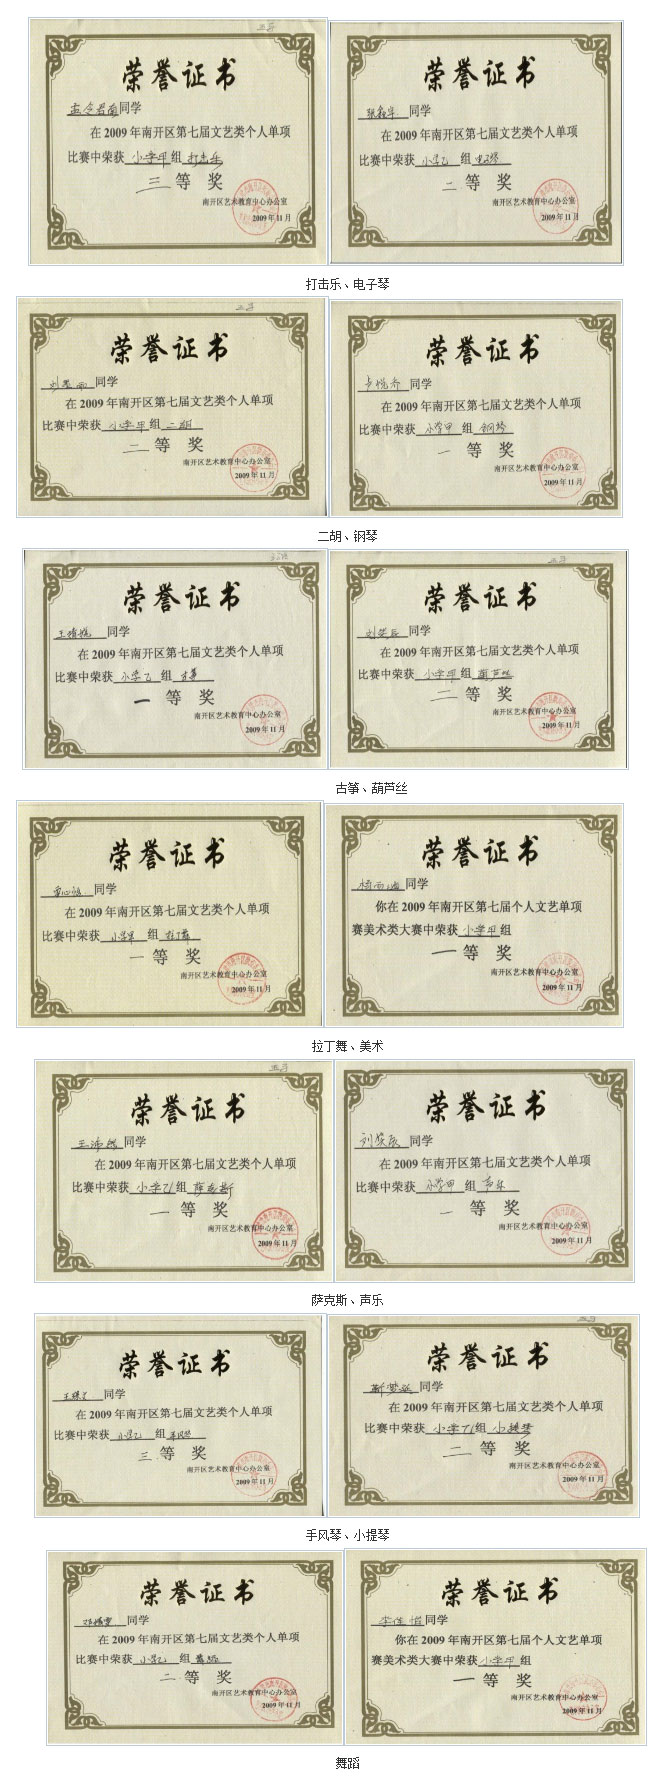 荣誉证书
同学
在2009年南开区第七届文艺类个人单项
比赛中荣获 小学甲 组 打击乐
三 等 奖
南开区艺术教育中心办公室
2009年11月
荣誉证书
同学
在2009年南开区第七届文艺类个人单项
比赛中荣获 小学乙 组 电子琴
二 等 奖
南开区艺术教育中心办公室
2009年11月
打击乐、电子琴
荣誉证书
同学
在2009年南开区第七届文艺类个人单项
比赛中荣获 小学甲 组 二胡
二 等 奖
南开区艺术教育中心办公室
2009年11月
荣誉证书
同学
在2009年南开区第七届文艺类个人单项
比赛中荣获 小学甲 组 钢琴
一 等 奖
南开区艺术教育中心办公室
2009年11月
二胡、钢琴
荣誉证书
同学
在2009年南开区第七届文艺类个人单项
比赛中荣获 小学乙 组 古筝
一 等 奖
南开区艺术教育中心办公室
2009年11月
荣誉证书
同学
在2009年南开区第七届文艺类个人单项
比赛中荣获 小学甲 组 葫芦丝
二 等 奖
南开区艺术教育中心办公室
2009年11月
古筝、葫芦丝
荣誉证书
同学
在2009年南开区第七届文艺类个人单项
比赛中荣获 小学甲 组 拉丁舞
一 等 奖
南开区艺术教育中心办公室
2009年11月
荣誉证书
同学
你在2009年南开区第七届个人文艺单项
赛美术类大赛中荣获 小学甲 组
一 等 奖
南开区艺术教育中心办公室
2009年11月
拉丁舞、美术
荣誉证书
同学
在2009年南开区第七届文艺类个人单项
比赛中荣获 小学乙 组 萨克斯
一 等 奖
南开区艺术教育中心办公室
2009年11月
荣誉证书
同学
在2009年南开区第七届文艺类个人单项
比赛中荣获 小学甲 组 声乐
一 等 奖
南开区艺术教育中心办公室
2009年11月
萨克斯、声乐
荣誉证书
同学
在2009年南开区第七届文艺类个人单项
比赛中荣获 小学乙 组 手风琴
三 等 奖
南开区艺术教育中心办公室
2009年11月
荣誉证书
同学
在2009年南开区第七届文艺类个人单项
比赛中荣获 小学乙 组 小提琴
二 等 奖
南开区艺术教育中心办公室
2009年11月
手风琴、小提琴
荣誉证书
同学
在2009年南开区第七届文艺类个人单项
比赛中荣获 小学乙 组 舞蹈
二 等 奖
南开区艺术教育中心办公室
2009年11月
荣誉证书
同学
你在2009年南开区第七届个人文艺单项
赛美术类大赛中荣获 小学甲 组
一 等 奖
南开区艺术教育中心办公室
2009年11月
舞蹈